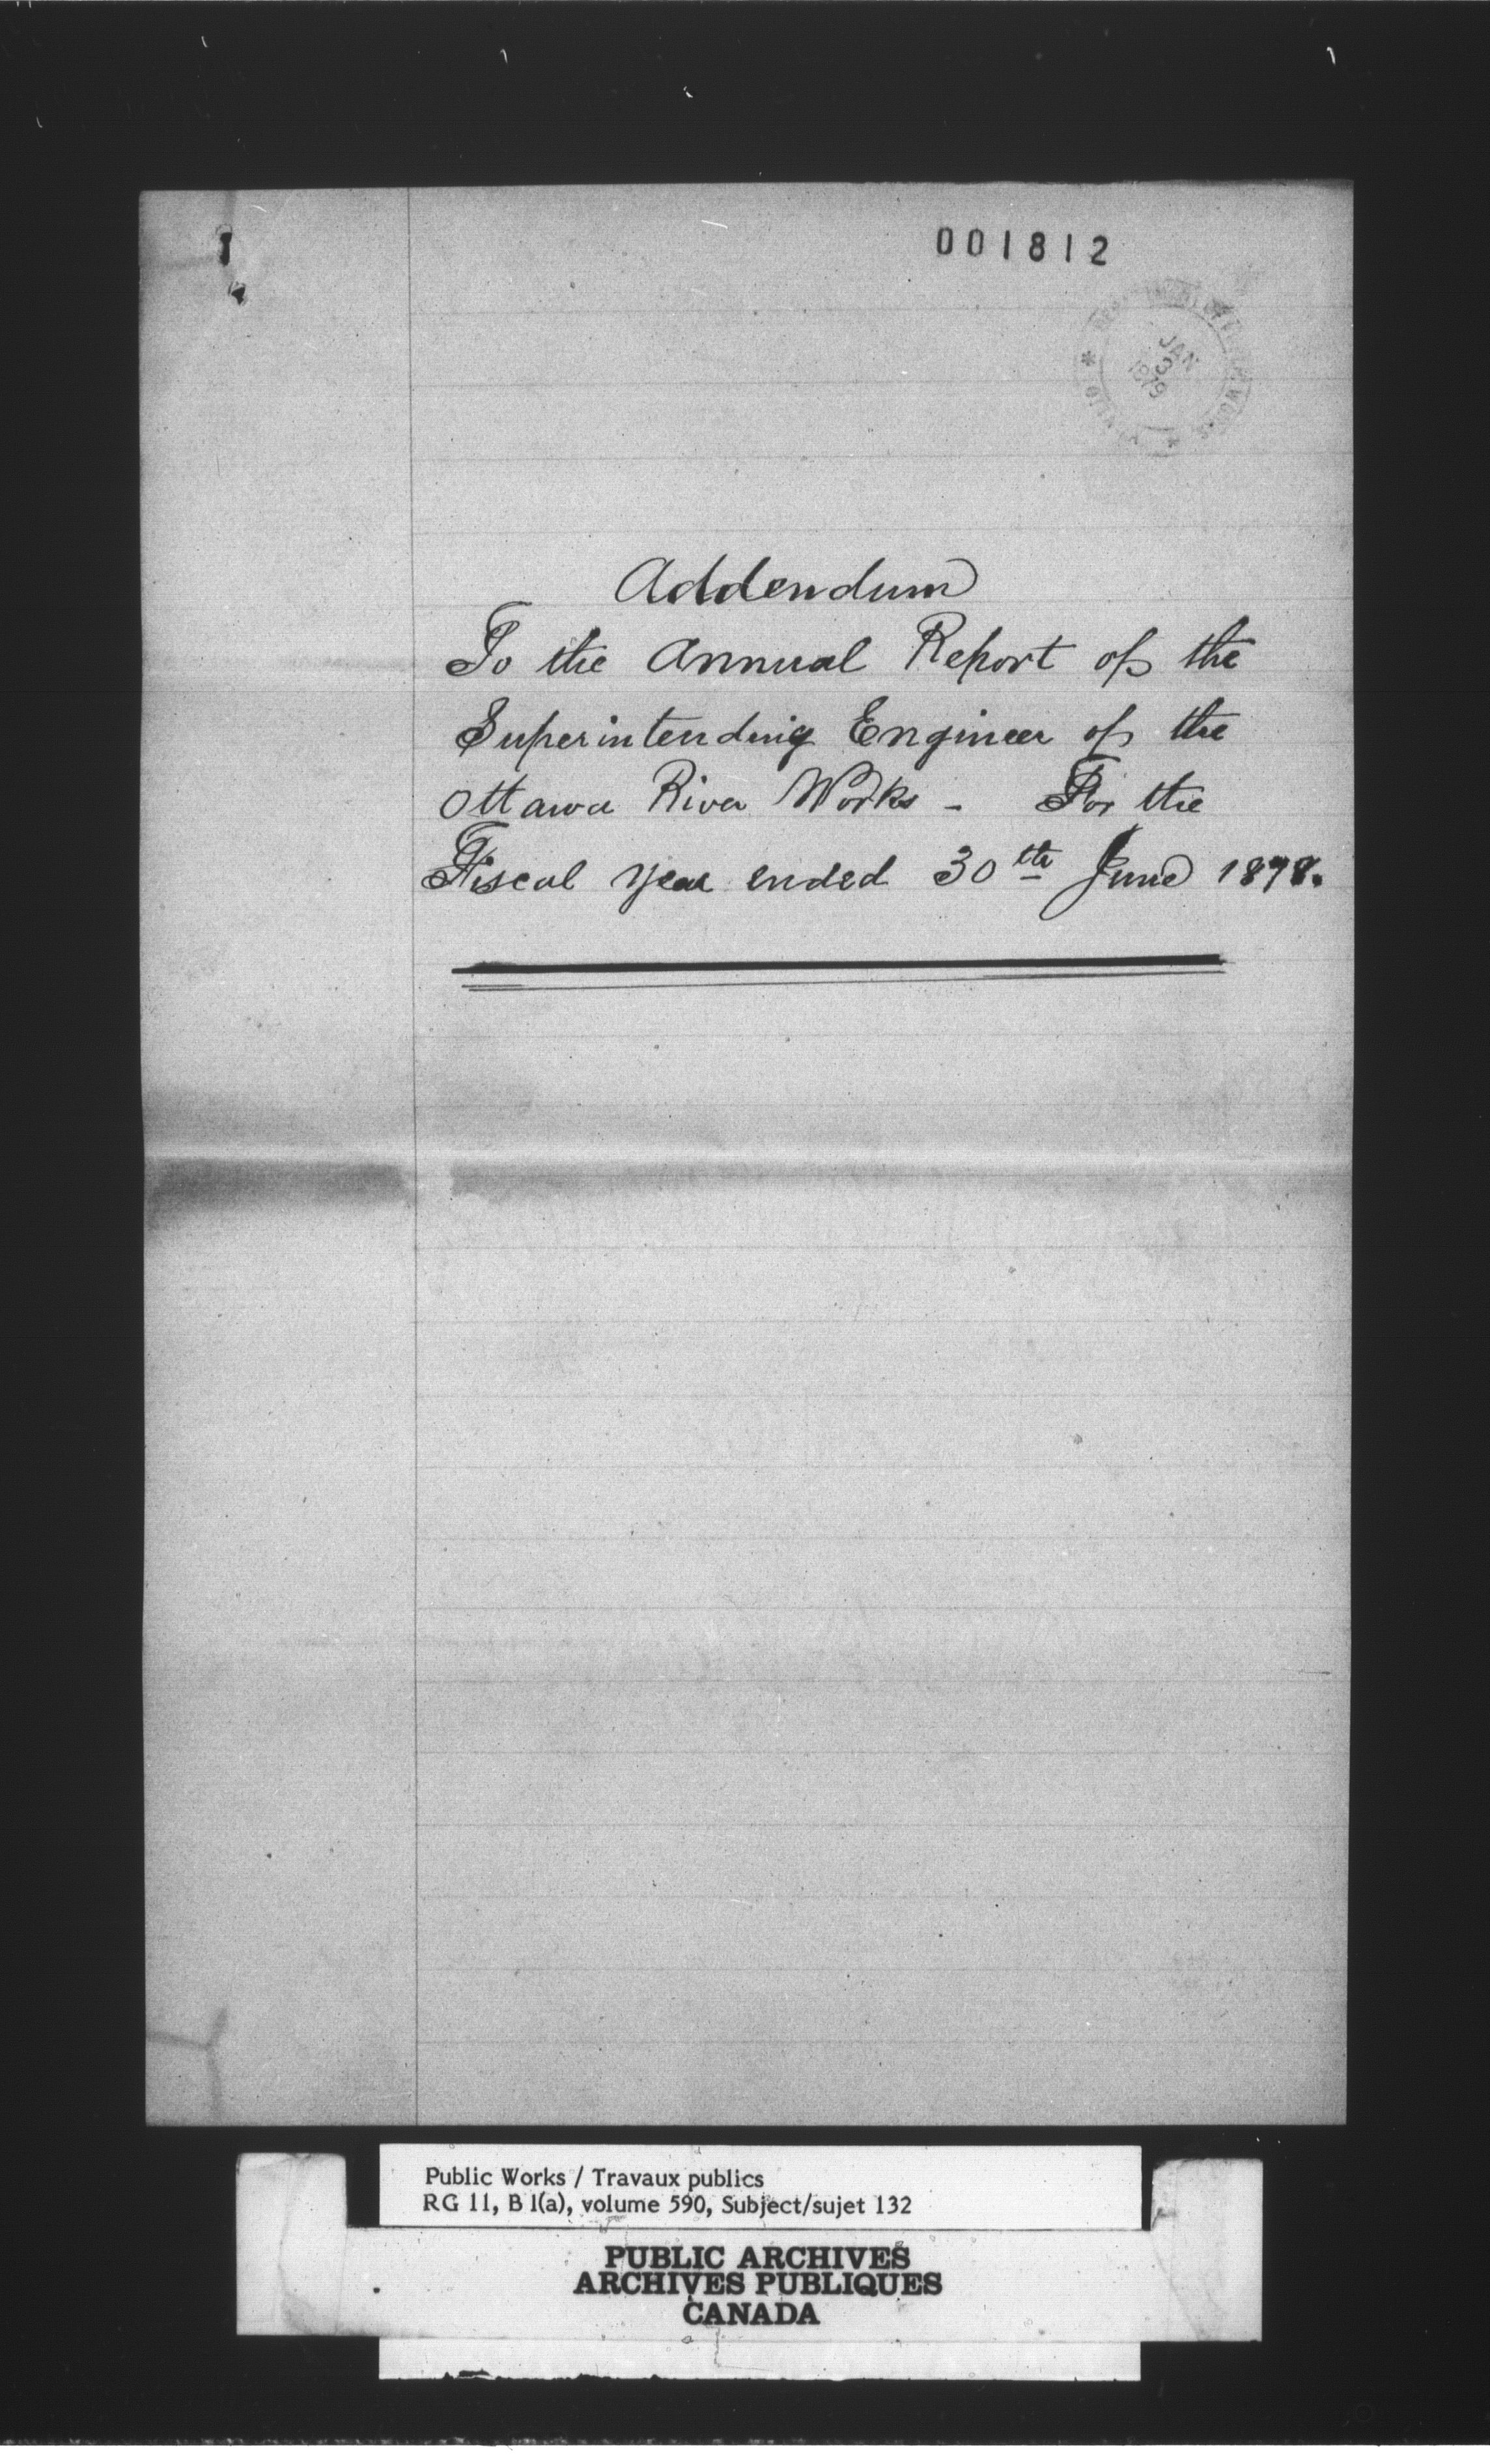 001812
JAN
3
1879
WORKS
Addendum
To the Annual Report of the
Superintending Engineer of the
Ottawa River Works - For the
Fiscal year ended 30th June 1878.
Public Works / Travaux publics
RG 11, B 1(a), volume 590, Subject/sujet 132
PUBLIC ARCHIVES
ARCHIVES PUBLIQUES
CANADA